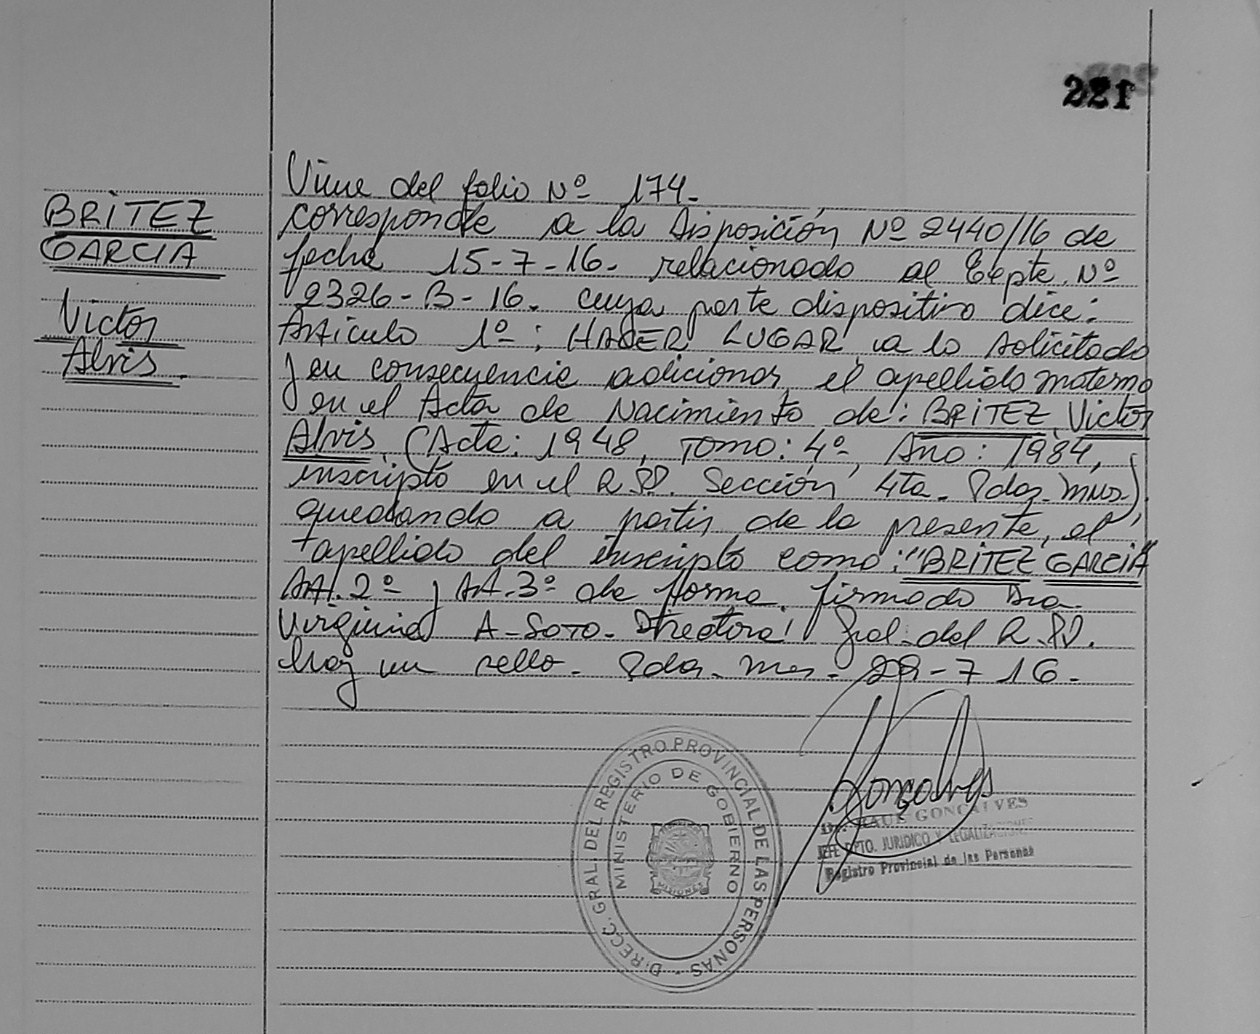 221
BRITEZ
GARCIA
Victor
Alvis.
Viene del folio Nº 174.-
corresponde a la Disposición Nº 2440/16 de
fecha 15-7-16. relacionado al Expte. Nº
2326-B-16. cuya parte dispositiva dice:
Artículo 1º: HACER LUGAR a lo solicitado
y en consecuencia adicionar el apellido materno
en el Acta de Nacimiento de: BRITEZ, Victor
Alvis, (Acta: 1948, Tomo: 4º, Año: 1984,
inscripto en el R.P.P. Sección 4ta. Pdas. Mnes.),
quedando a partir de la presente, el
apellido del inscripto como: "BRITEZ GARCIA
Art. 2º y Art. 3º de forma. firmado Dra.
Virginia A. SOTO. Directora Gral. del R.P.P.
Hay un sello. Pdas. Mnes. 29-7-16.
DIRECC. GRAL. DEL REGISTRO PROVINCIAL DE LAS PERSONAS
MINISTERIO DE GOBIERNO
MISIONES
Goncalves
RAUL GONCALVES
JEFE DPTO. JURIDICO Y LEGALIZACIONES
Registro Provincial de las Personas